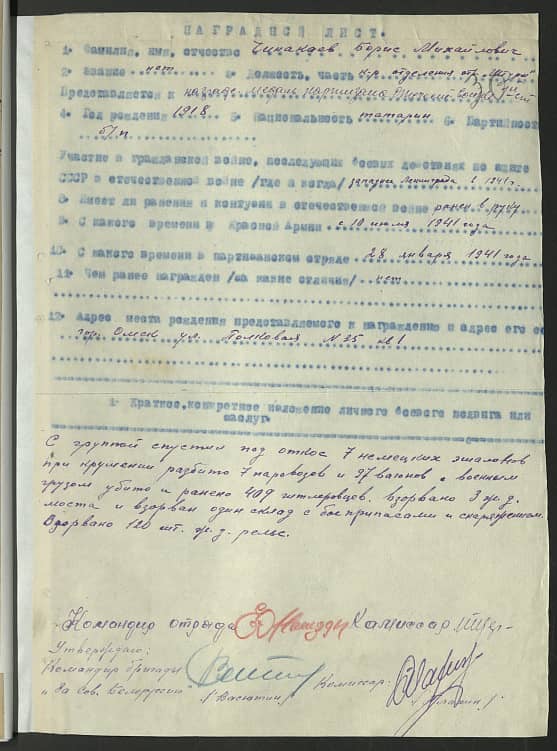 НАГРАДНОЙ ЛИСТ.
1- Фамилия, имя, отчество Чинакаев Борис Михайлович
2- Звание нет 3 Должность, часть к-р отделения отр. "Штурм"
Представляется к награде медаль партизана Отечествен. ст
4- Год рождения 1918 5- Национальность татарин 6- Партийность
б/п
Участие в гражданской войне, последующих боевых действиях по защите
СССР и отечественной войне /где и когда/ защита Ленинграда в 1941г.
8- Имеет ли ранения и контузии в отечественной войне ранен в
9- С какого времени в Красной Армии с 10 июля 1941 года
10- С какого времени в партизанском отряде 28 января 1941 года
11- Чем ранее награжден /за какие отличия/ нет
12- Адрес места рождения представляемого к награждению и адрес его се
гор. Омск ул. Полковая N 35 кв 1
1- Краткое, конкретное изложение личного боевого подвига или
заслуг
С группой спустил под откос 7 немецких эшалонов
при крушении разбито 7 паровозов и 97 вагонов с военным
грузом убито и ранено 409 гитлеровцев. Взорвано 3 ж.д.
моста и взорван один склад с боеприпасами и снаряжением.
Взорвано 120 шт. ж.д. рельс.
Командир отряда Комиссар
Утверждаю:
Командир бригады Комиссар
"За Сов. Белоруссию" /Васютин/